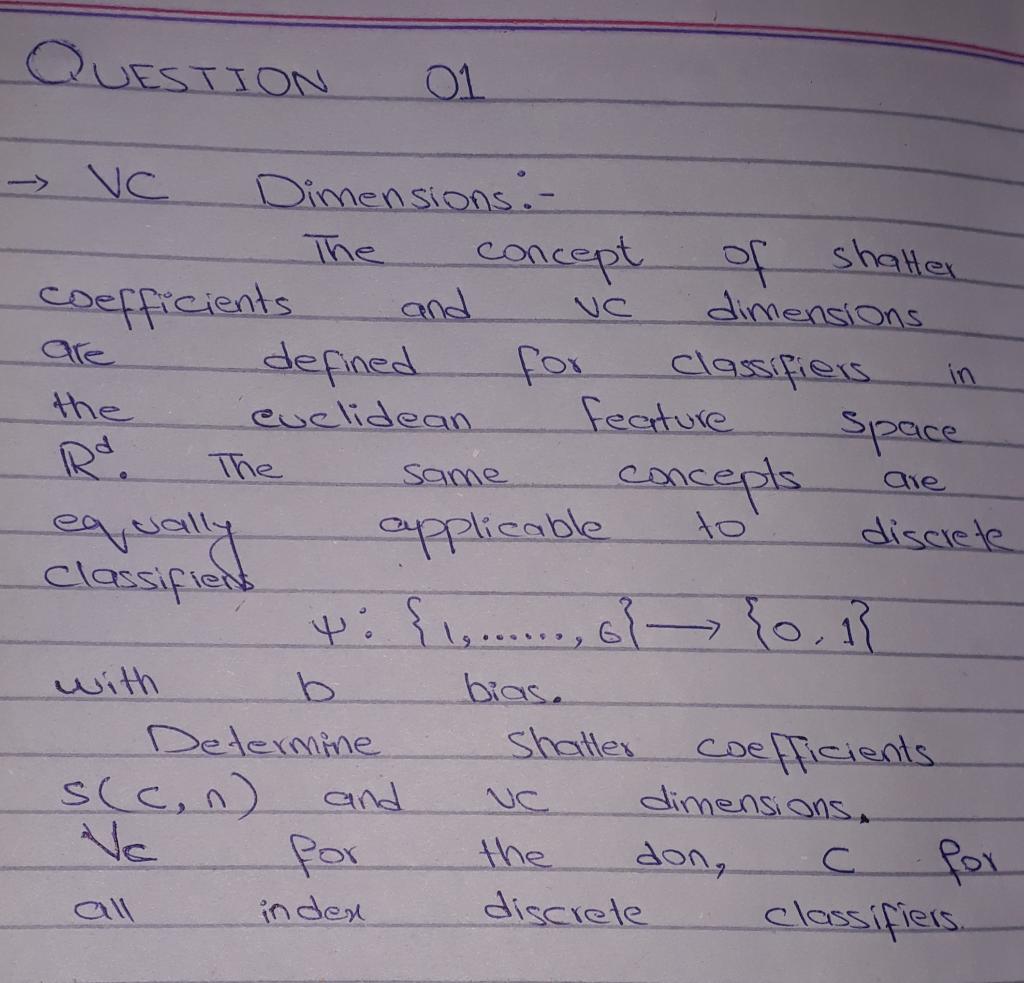 QUESTION 01
→ VC Dimensions:-
The concept of shatter
coefficients and VC dimensions
are defined for classifiers in
the euclidean feature space
ℝᵈ. The same concepts are
equally applicable to discrete
classifiers
Ψ: {1,......, 6} → {0, 1}
with b bias.
Determine Shatter coefficients
S(C, n) and VC dimensions.
Vc for the don, C for
all index discrete classifiers.